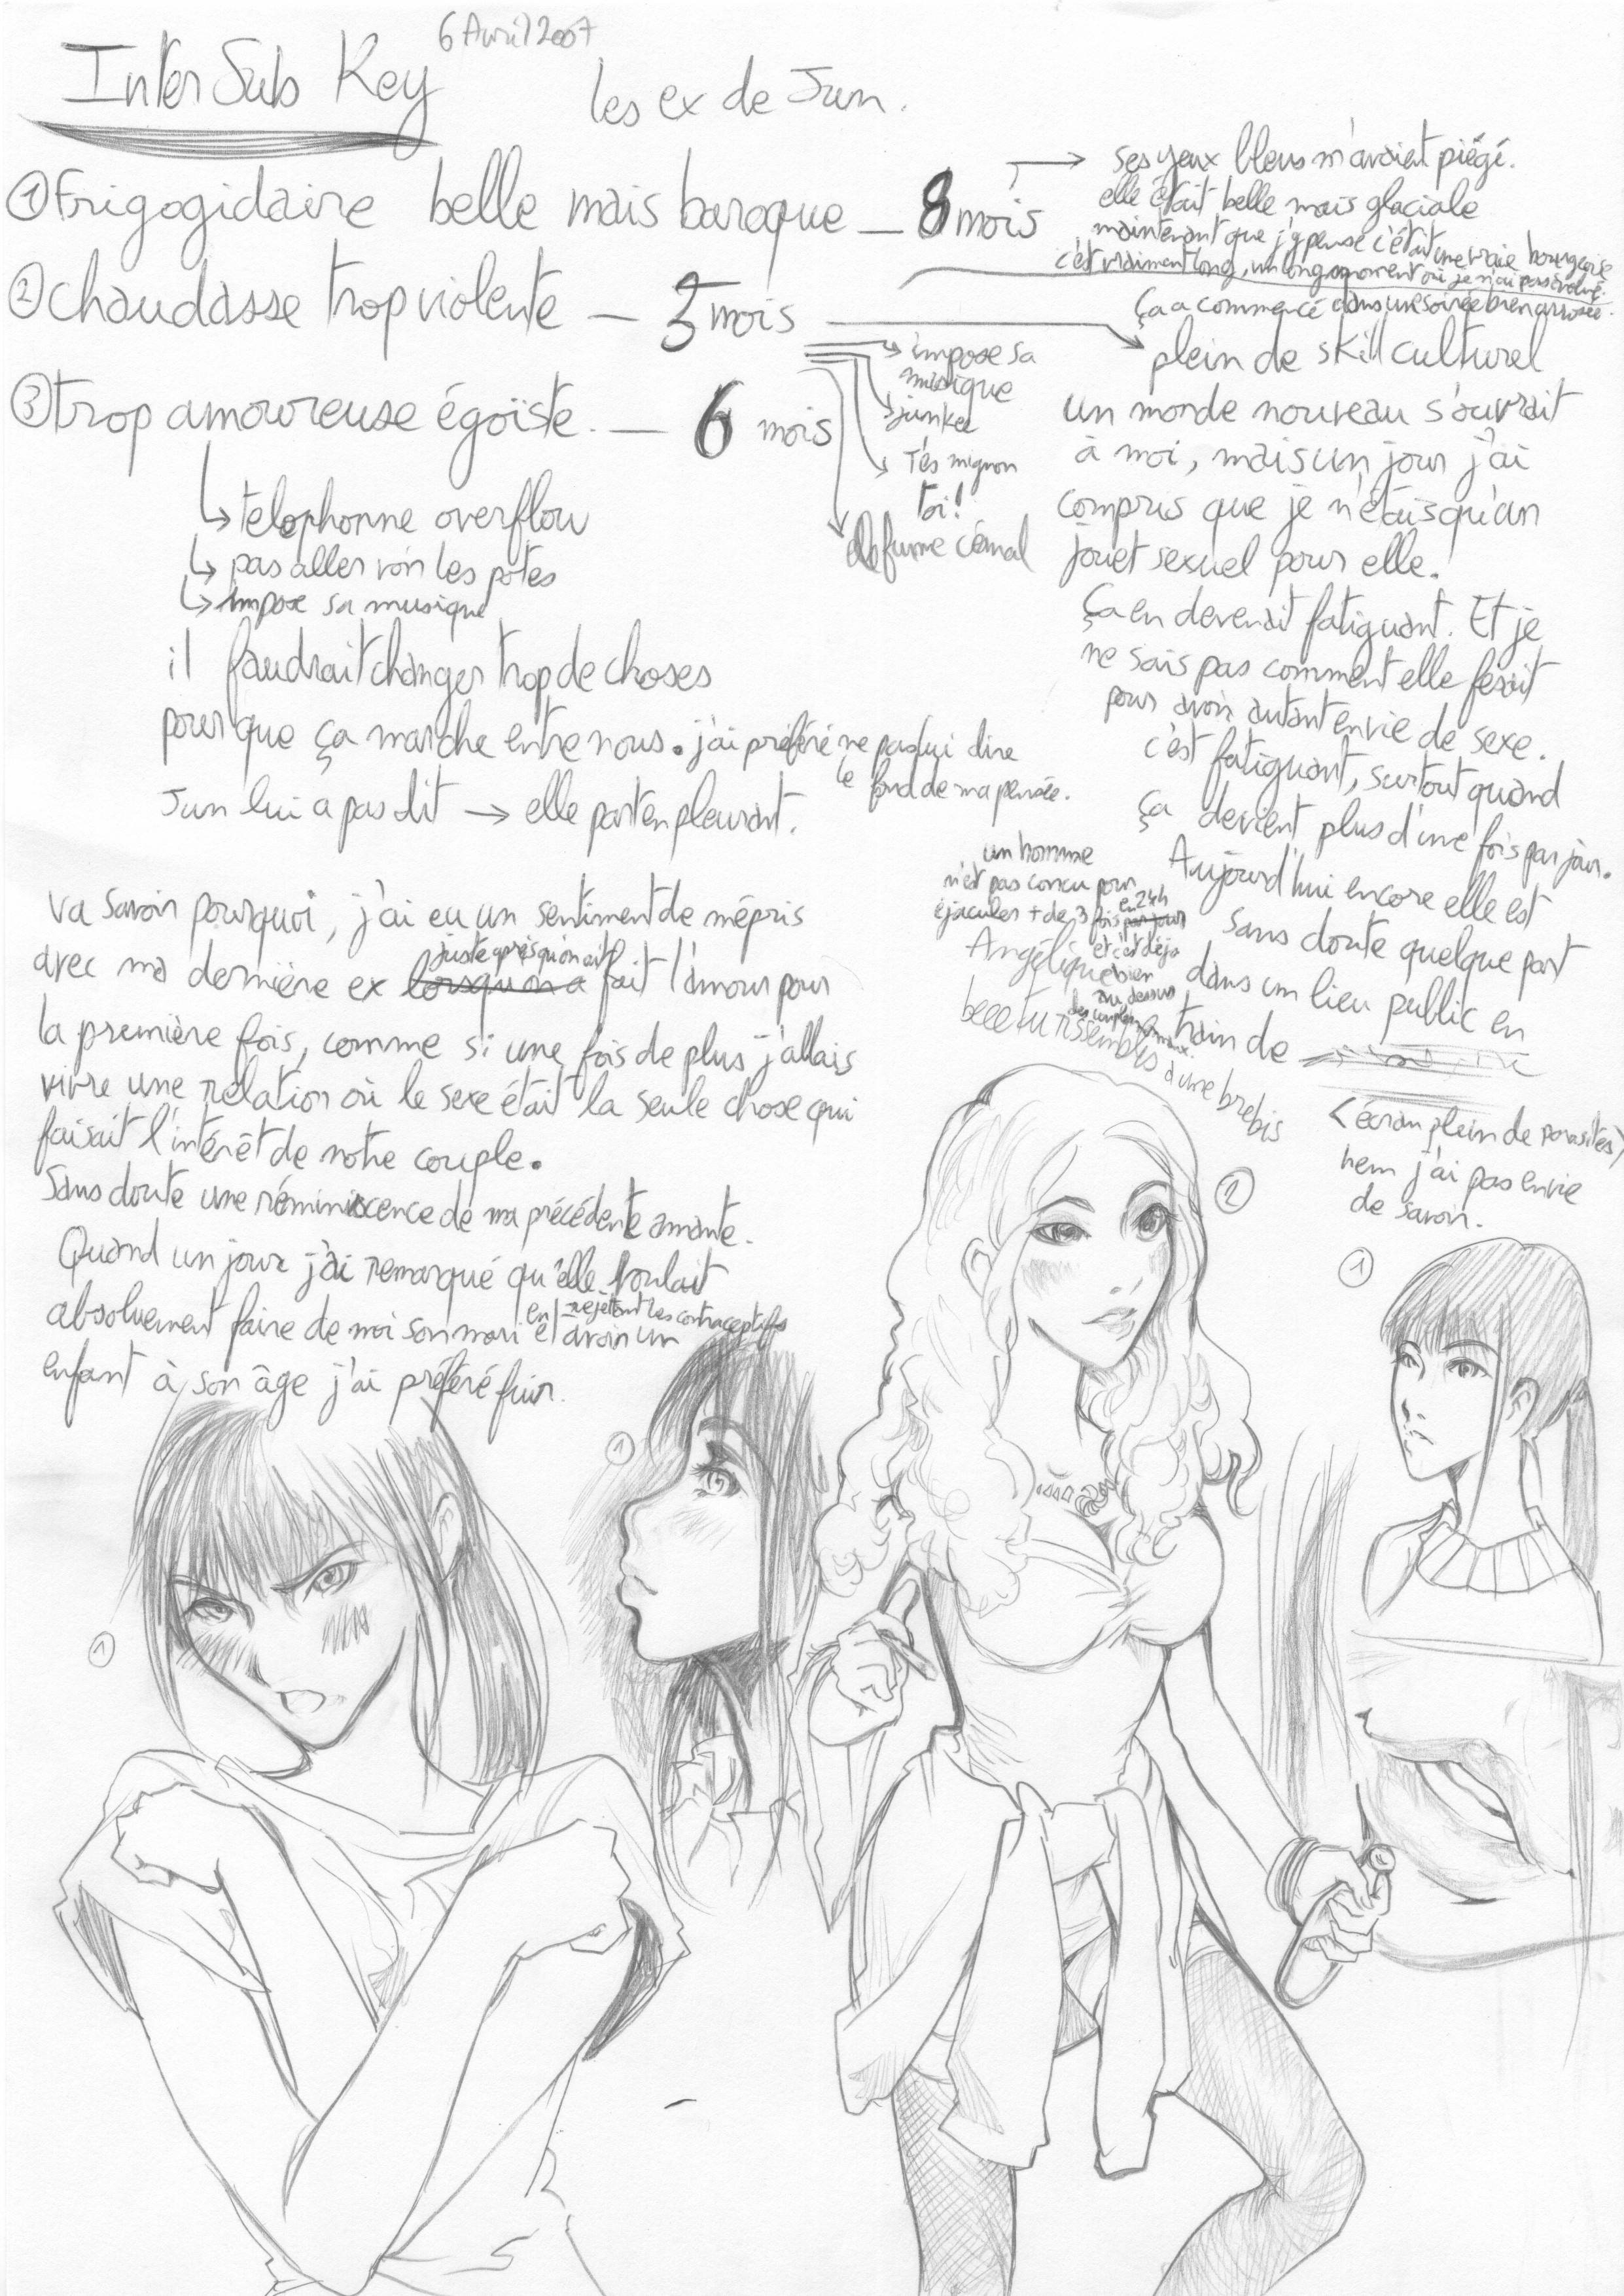 6 Avril 2007
Inter Sub Key
les ex de Jun.
① Frigogidaire belle mais baroque — 8 mois
② chaudasse trop violente — 3 mois
③ trop amoureuse égoïste. — 6 mois
→ ses yeux bleus m'avaient piégé.
elle était belle mais glaciale
maintenant que j'y pense c'était une vraie bourgeoise
c'est vraiment long, un long moment où je n'ai pas évolué.
Ça a commencé dans une soirée bien arrosée.
plein de skill culturel
un monde nouveau s'ouvrait
à moi, mais un jour j'ai
compris que je n'étais qu'un
jouet sexuel pour elle.
Ça en devenait fatiguant. Et je
ne sais pas comment elle fesait
pour avoir autant envie de sexe.
c'est fatiguant, surtout quand
ça devient plus d'une fois par jour.
Aujourd'hui encore elle est
sans doute quelque part
dans un lieu public en
train de
<écran plein de parasites>
hem j'ai pas envie
de savoir.
impose sa
musique
junkee
T'es mignon
toi!
fume c'é mal
telephonne overflow
pas aller voir les potes
impose sa musique
il faudrait changer trop de choses
pour que ça marche entre nous. j'ai préféré ne pas lui dire
le fond de ma pensée.
Jun lui a pas dit → elle part en pleurant.
un homme
n'est pas concu pour
éjaculer + de 3 fois par jour
en 24h
et c'est déjà
bien
au dessus
des
Angélique
beee tu ressembles à une brebis
va savoir pourquoi, j'ai eu un sentiment de mépris
avec ma dernière ex lorsqu'on a fait l'amour pour
juste après qu'on ait
la première fois, comme si une fois de plus j'allais
vivre une relation où le sexe était la seule chose qui
faisait l'intérêt de notre couple.
Sans doute une réminiscence de ma précédente amante.
Quand un jour j'ai remarqué qu'elle voulait
absoluement faire de moi son mari et avoir un
en rejettant les contraceptifs
enfant à son âge j'ai préféré fuir.
②
①
①
①